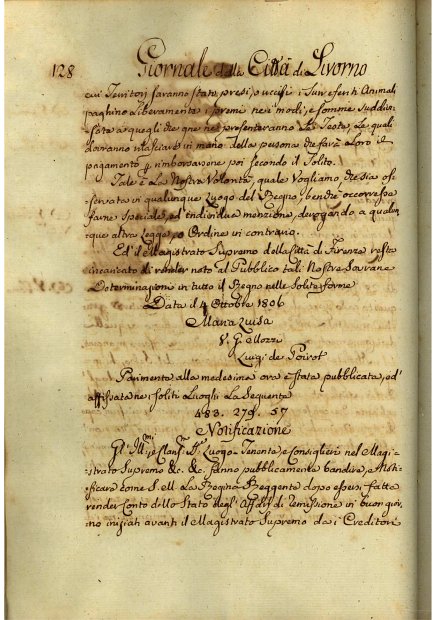 128 Giornale della Città di Livorno
cui Territorj saranno stati presi, o uccisi i sunesenti Animali
paghino liberamente i premi nei modi, e somme suddis-
sata a quegli che gne ne presenteranno la Testa, la qual
dovranno rilasciare in mano della persona che farà a loro il
pagamento p. rimborsarsene poi secondo il Solito.
Tale è la Nostra Volontà, quale Vogliamo che sia os-
servata in qualunque Luogo del Regno, benchè occorresse
farne speciale, ed individua menzione, derogando a qualun
que altra Legge, o Ordine in contrario.
Ed il Magistrato Supremo della Città di Firenze resta
incaricato di render noto al Pubblico tali Nostre Sovrane
Determinazioni in tutto il Regno nelle Solite forme
Data il 4 Ottobre 1806
Maria Luisa
V. G. Mozzi
Luigi de Poirot
Parimente alla medesima ora è stata pubblicata, ed
affissata nei soliti Luoghi la Seguente
483. 279. 57
Notificazione
Gl' Ill.mi, e Clariss.i SS.i Luogo-Tenente e Consiglieri nel Magi-
strato Supremo &c. &c. fanno pubblicamente bandire, e Noti-
ficare come S. M. La Regina Reggente dopo essersi fatta
render Conto dello Stato degl' Affari di remissione in buon gior-
no iniziati avanti il Magistrato Supremo da i Creditori